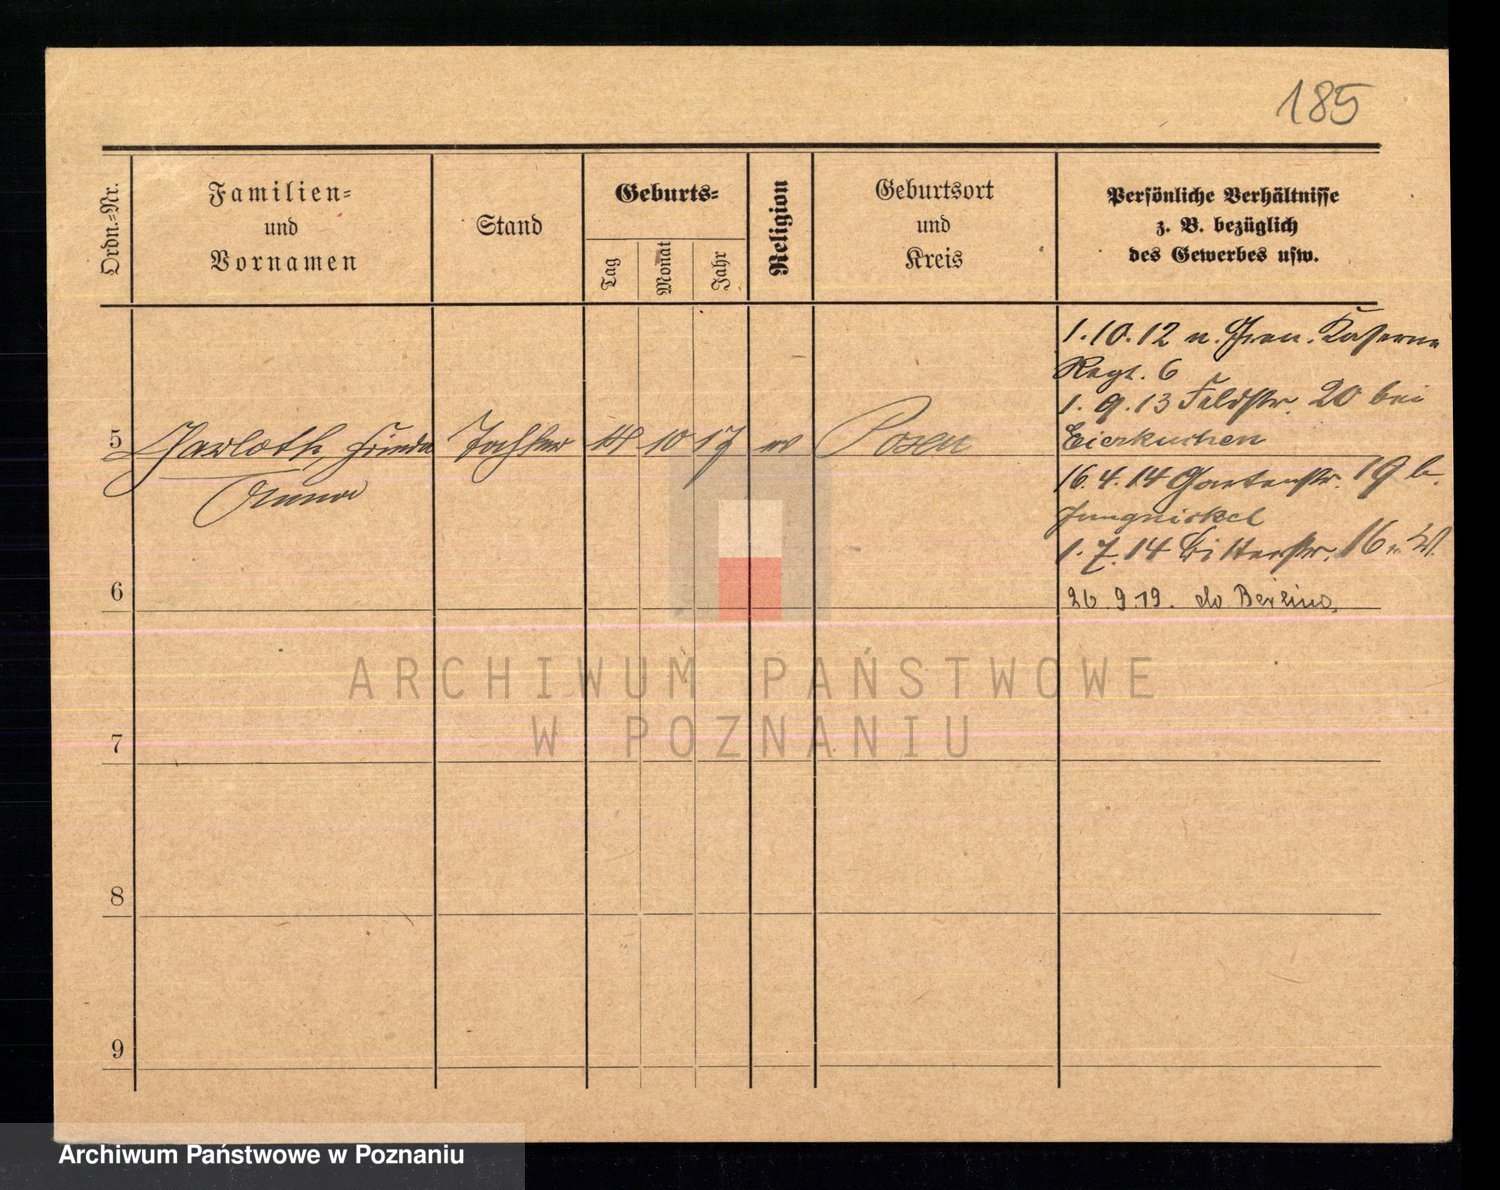 185
Ordn.=Nr.
Familien=
und
Vornamen
Stand
Geburts=
Tag
Monat
Jahr
Religion
Geburtsort
und
Kreis
Persönliche Verhältnisse
z. B. bezüglich
des Gewerbes usw.
1.10.12 n. Gren. Kaserne
Regt. 6
1. 9. 13 Feldstr. 20 bei
Eierkuchen
5 Charloth, Frieda Tochter 10 17 ev Posen
Anna
16. 4. 14 Gartenstr. 19 b.
Jungnickel
1. 7. 14 Ritterstr. 16
6
26 9.19. do Berlina
7
8
9
ARCHIWUM PAŃSTWOWE
W POZNANIU
Archiwum Państwowe w Poznaniu